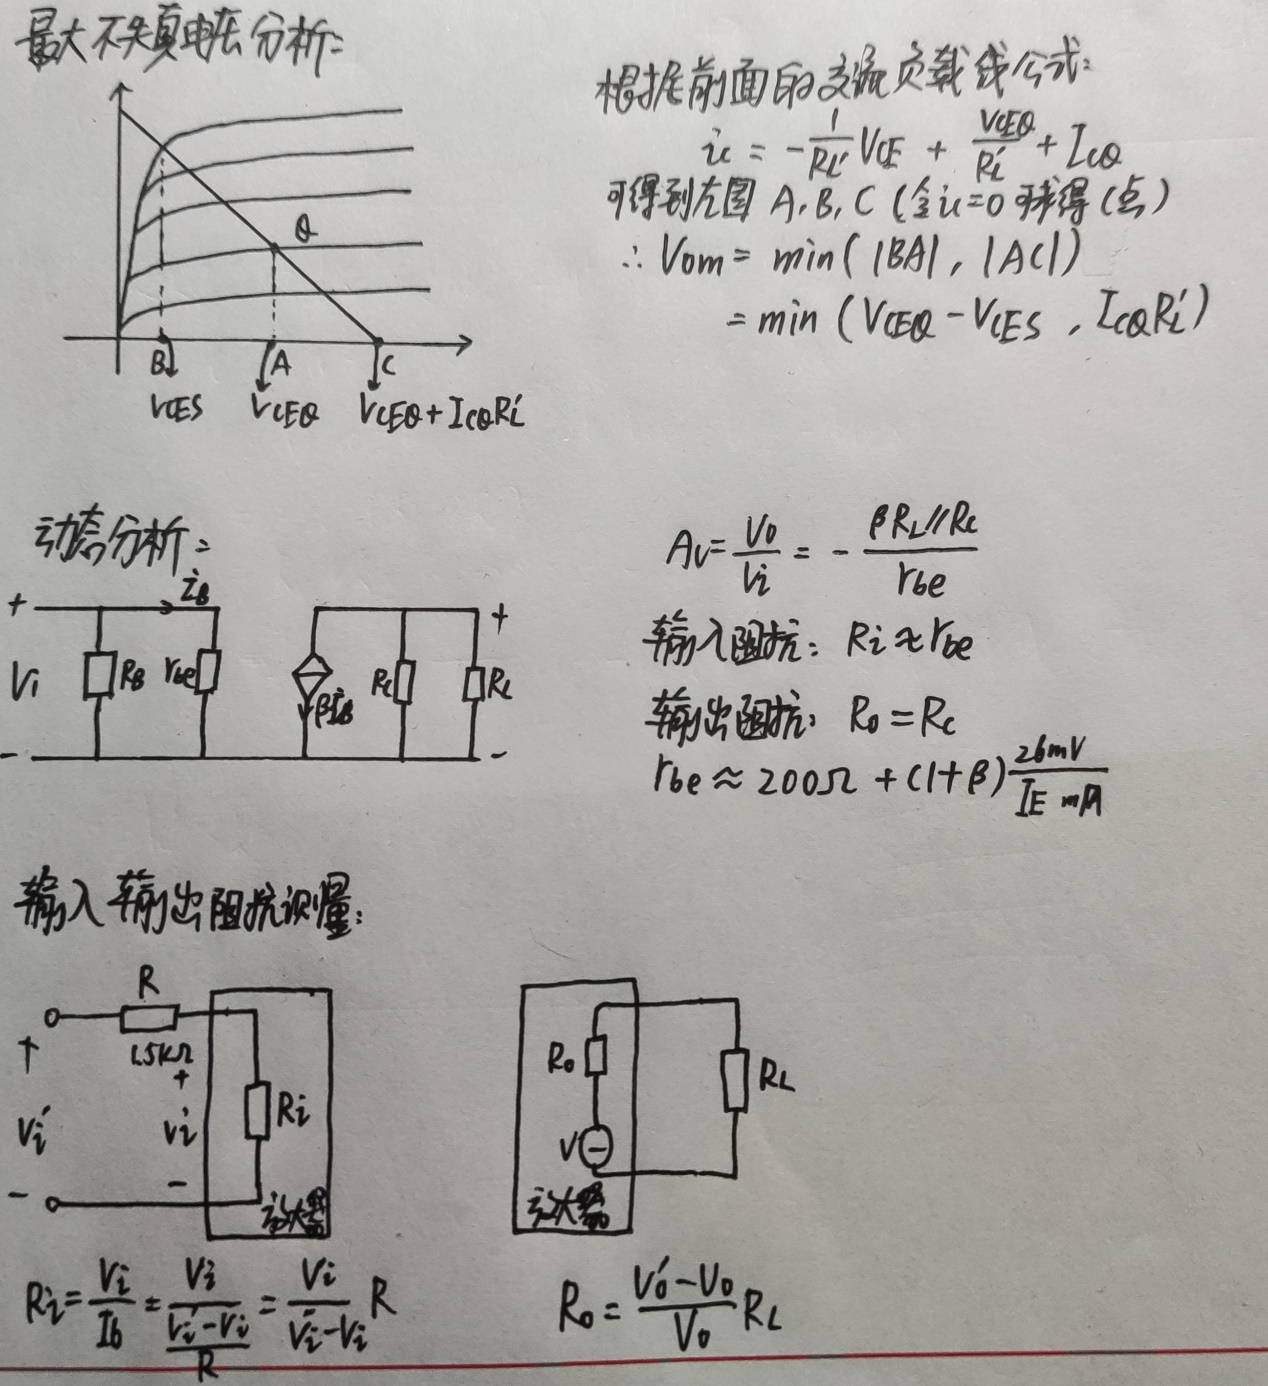 最大不失真电压分析:
根据前面的交流负载线公式:
ic = -1/RL' VCE + VCEQ/RL' + ICQ
可得到左图 A,B,C (令ic=0可求得C点)
∴ Vom = min(|BA|, |AC|)
= min (VCEQ - VCES , ICQRL')
Q
B A C
VCES VCEQ VCEQ+ICQRL'
动态分析:
+ iB +
Vi RB rbe βiB Rc RL
- -
Av = Vo/Vi = - βRL//Rc / rbe
输入阻抗: Ri ≈ rbe
输出阻抗: Ro = Rc
rbe ≈ 200Ω + (1+β) 26mV / IE mA
输入输出阻抗测量:
R
1.5KΩ
+
Vi' Vi Ri
- -
放大器
Ro RL
V
放大器
Ri = Vi/Ib = Vi / ((Vi'-Vi)/R) = Vi/(Vi'-Vi) R
Ro = (Vo'-Vo)/Vo RL